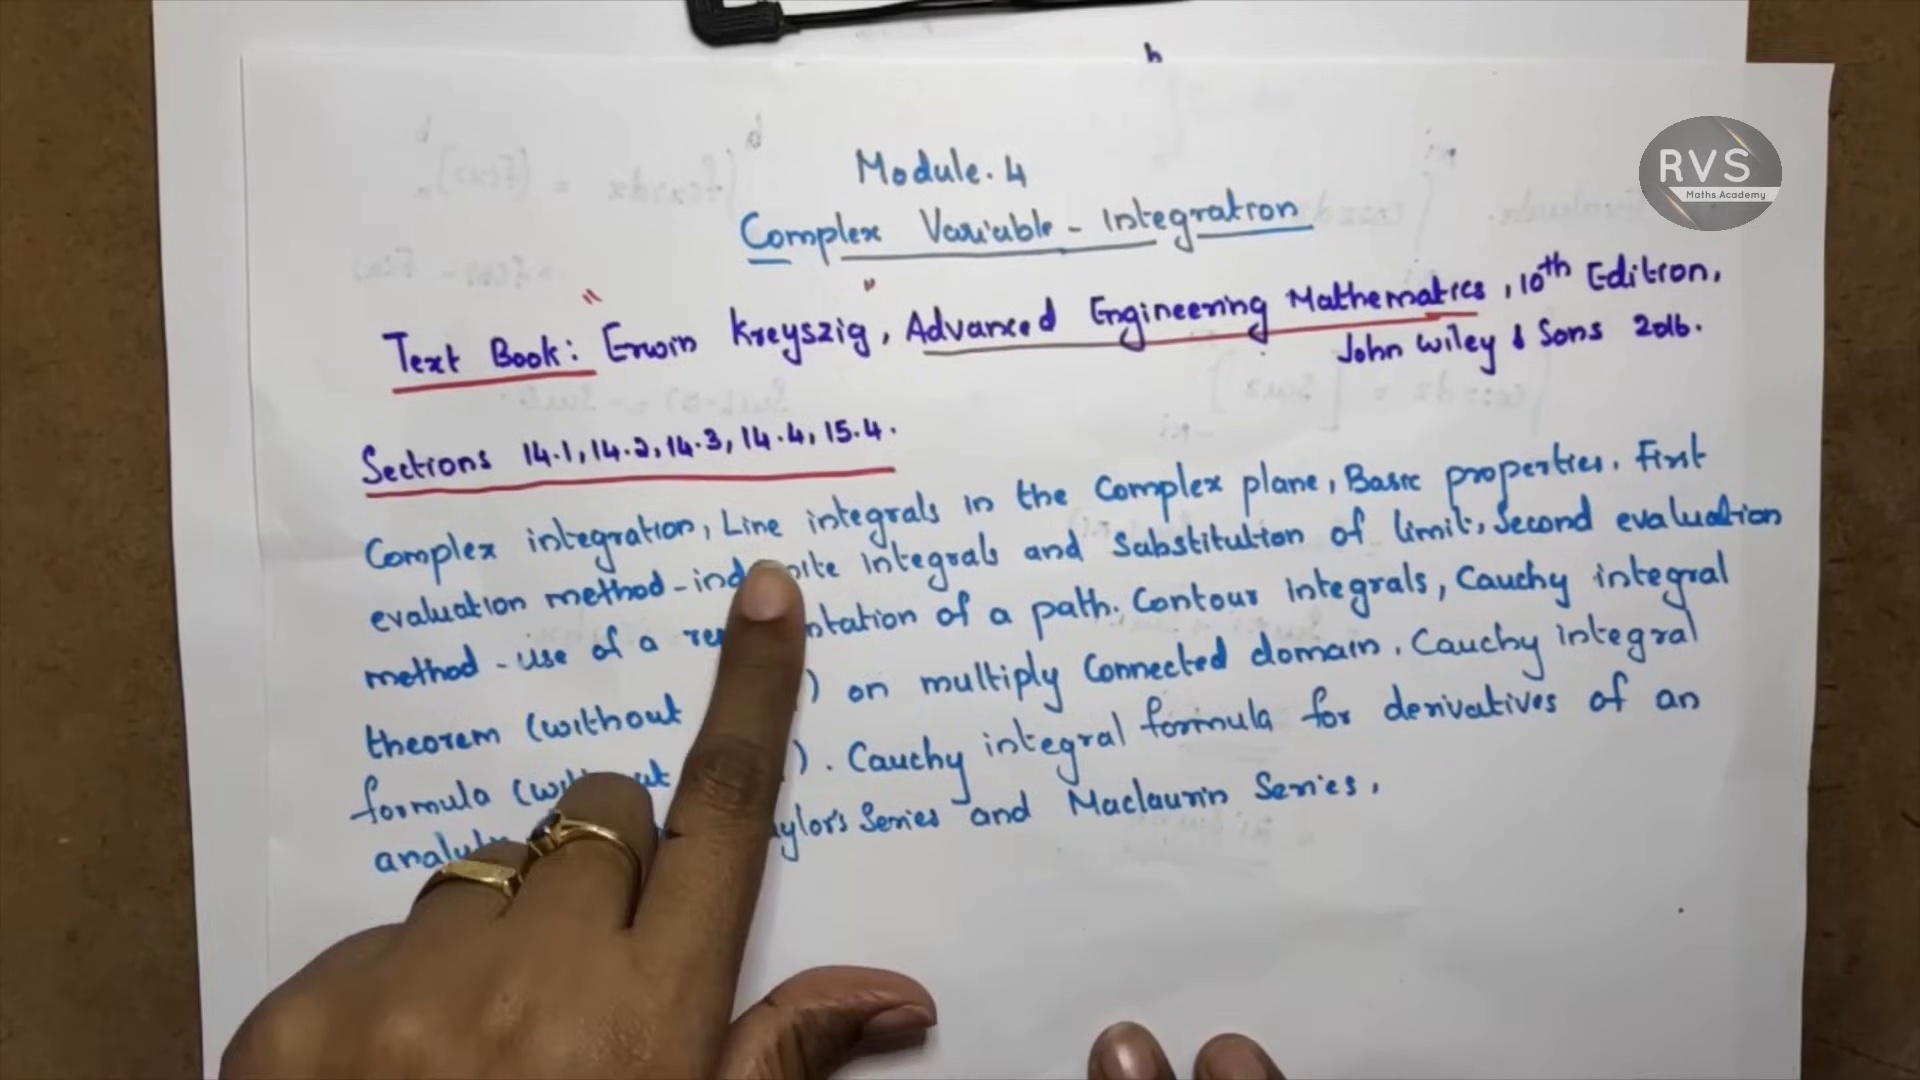 RVS
Maths Academy
Module. 4
Complex Variable - Integration
Text Book: " Erwin Kreyszig, " Advanced Engineering Mathematics, 10th Edition,
John Wiley & Sons 2016.
Sections 14.1, 14.2, 14.3, 14.4, 15.4.
Complex integration, Line integrals in the Complex plane, Basic properties. First
evaluation method - integrals and Substitution of limit. Second evaluation
method - Use of a of a path. Contour integrals, Cauchy integral
theorem (without ) on multiply Connected domain. Cauchy integral
formula ( ). Cauchy integral formula for derivatives of an
Series and Maclaurin Series,